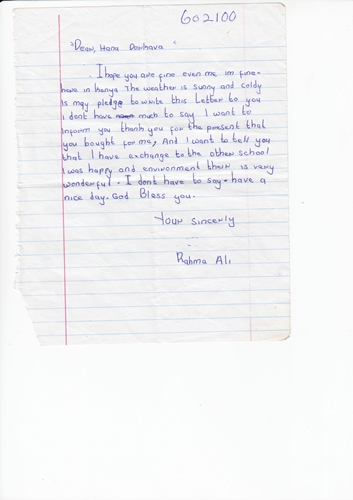 602100
"Dear, Hana Donhava"
I hope you are fine even me im fine
here in kenya The weather is sunny and coldy
is may pledge to write this Letter to you
I dont have much to say I want to
inform you thank you for the present that
you bought for me, And I want to tell you
that I have exchange to the other school
I was happy and environment their is very
wonderful. I dont have to say. have a
nice day. God Bless you.
Your sincerly
Rahma Ali